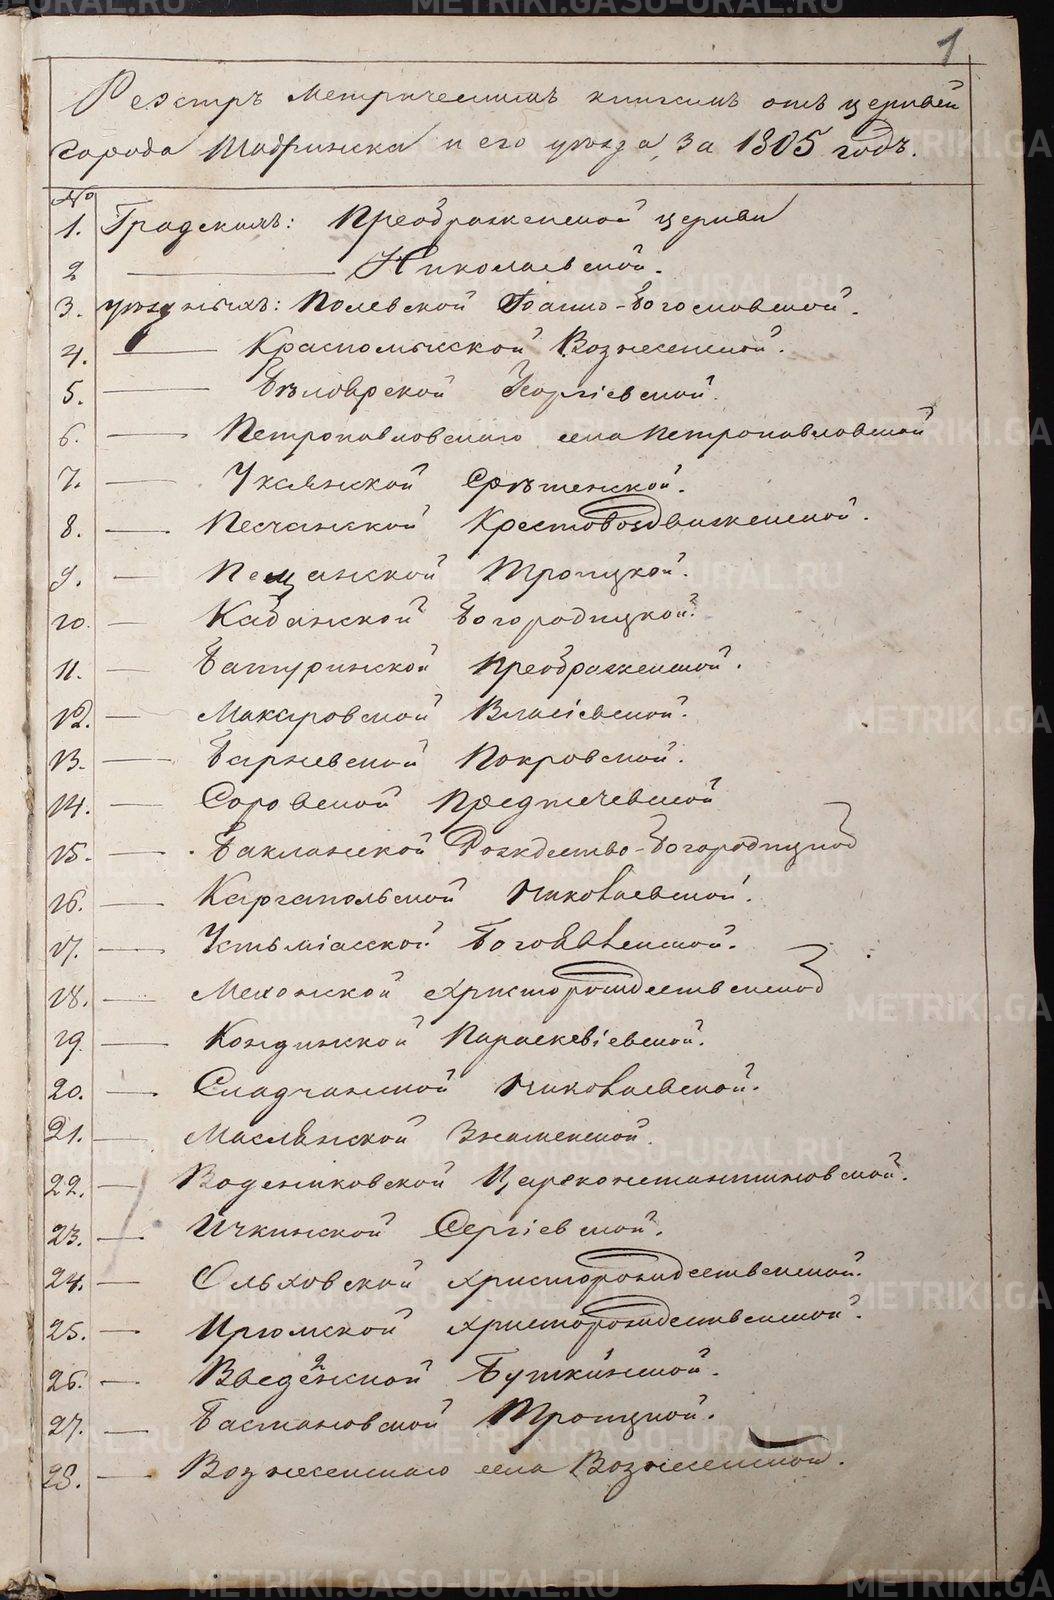 1
Реэстръ метрическимъ книгамъ отъ церквей
города Шадринска и его уѣзда, за 1805 годъ.
№
1. Градскимъ: Преображенской церкви
2 Николаевской.
3. уѣзднымъ: Полевской Іоанно-Богословской.
4. Красномысской Вознесенской.
5. Бѣлоярской Георгіевской.
6. Петропавловскаго села Петропавловской
7. Уксянской Срѣтенской.
8. Песчанской Крестовоздвиженской.
9. Пещанской Троицкой.
10. Кабанской Богородицкой.
11. Батуринской Преображенской.
12. Макаровской Власіевской.
13. Барневской Покровской.
14. Соровской Предтечевской
15. Бакланской Рождество-Богородицкой
16. Каргапольской Николаевской.
17. Устьміасской Богоявленской.
18. Мехонской Христорождественской
19. Кондинской Параскевіевской.
20. Сладчанской Николаевской.
21. Маслянской Знаменской.
22. Водениковской Цареконстантиновской.
23. Ичкинской Сергіевской.
24. Ольховской Христорождественской.
25. Ирюмской Христорождественской.
26. Введенской 2 Буткинской. 1
27. Басмановской Троицкой.
28. Вознесенскаго села Вознесенской.
METRIKI.GASO-URAL.RU